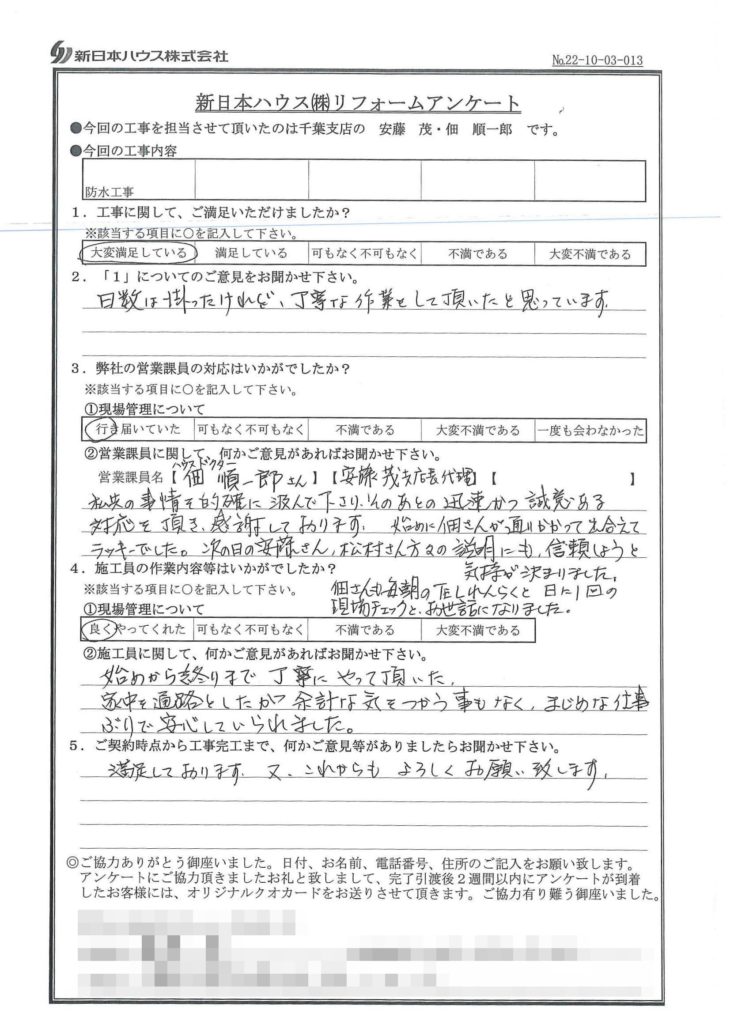 新日本ハウス株式会社
№22-10-03-013
新日本ハウス㈱リフォームアンケート
●今回の工事を担当させて頂いたのは千葉支店の 安藤 茂・佃 順一郎 です。
●今回の工事内容
防水工事
1．工事に関して、ご満足いただけましたか？
※該当する項目に○を記入して下さい。
大変満足している 満足している 可もなく不可もなく 不満である 大変不満である
2．「1」についてのご意見をお聞かせ下さい。
日数は掛ったけれど、丁寧な作業をして頂いたと思っています。
3．弊社の営業課員の対応はいかがでしたか？
※該当する項目に○を記入して下さい。
①現場管理について
行き届いていた 可もなく不可もなく 不満である 大変不満である 一度も会わなかった
②営業課員に関して、何かご意見があればお聞かせ下さい。
ハウスドクター
営業課員名【佃 順一郎さん】【安藤茂支店長代理】【 】
私共の事情を的確に汲んで下さり、そのあとの迅速かつ誠意ある
対応を頂き、感謝しております。始めに佃さんが通りかかって出会えて
ラッキーでした。次の日の安藤さん、松村さん方々の説明にも、信頼しようと
気持が決まりました。
4．施工員の作業内容等はいかがでしたか？
佃さんも毎朝のTELれんらくと日に1回の
現場チェックと、お世話になりました。
①現場管理について
良くやってくれた 可もなく不可もなく 不満である 大変不満である
②施工員に関して、何かご意見があればお聞かせ下さい。
始めから終りまで丁寧にやって頂いた。
家中を通路としたが余計な気をつかう事もなく、まじめな仕事
ぶりで安心していられました。
5．ご契約時点から工事完工まで、何かご意見等がありましたらお聞かせ下さい。
満足しております。又、これからもよろしくお願い致します。
◎ご協力ありがとう御座いました。日付、お名前、電話番号、住所のご記入をお願い致します。
アンケートにご協力頂きましたお礼と致しまして、完了引渡後2週間以内にアンケートが到着
したお客様には、オリジナルクオカードをお送りさせて頂きます。ご協力有り難う御座いました。